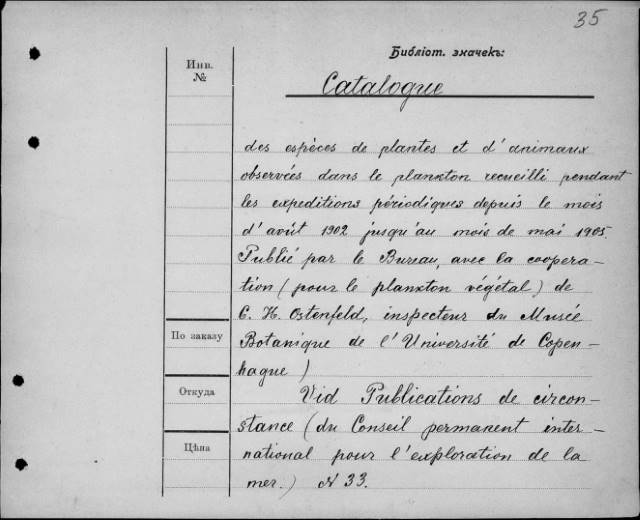 35
Библіот. значекъ:
Инв.
№
Catalogue
des espèces de plantes et d'animaux
observées dans le plankton recueilli pendant
les expeditions périodiques depuis le mois
d'août 1902 jusqu'au mois de mai 1905.
Publié par le Bureau, avec la coopera-
tion (pour le plankton végétal) de
C. H. Ostenfeld, inspecteur du Musée
По заказу
Botanique de l'Université de Copen-
hague)
Откуда
Vid Publications de circon-
stance (du Conseil permanent inter-
Цѣна
national pour l'exploration de la
mer.) N 33.